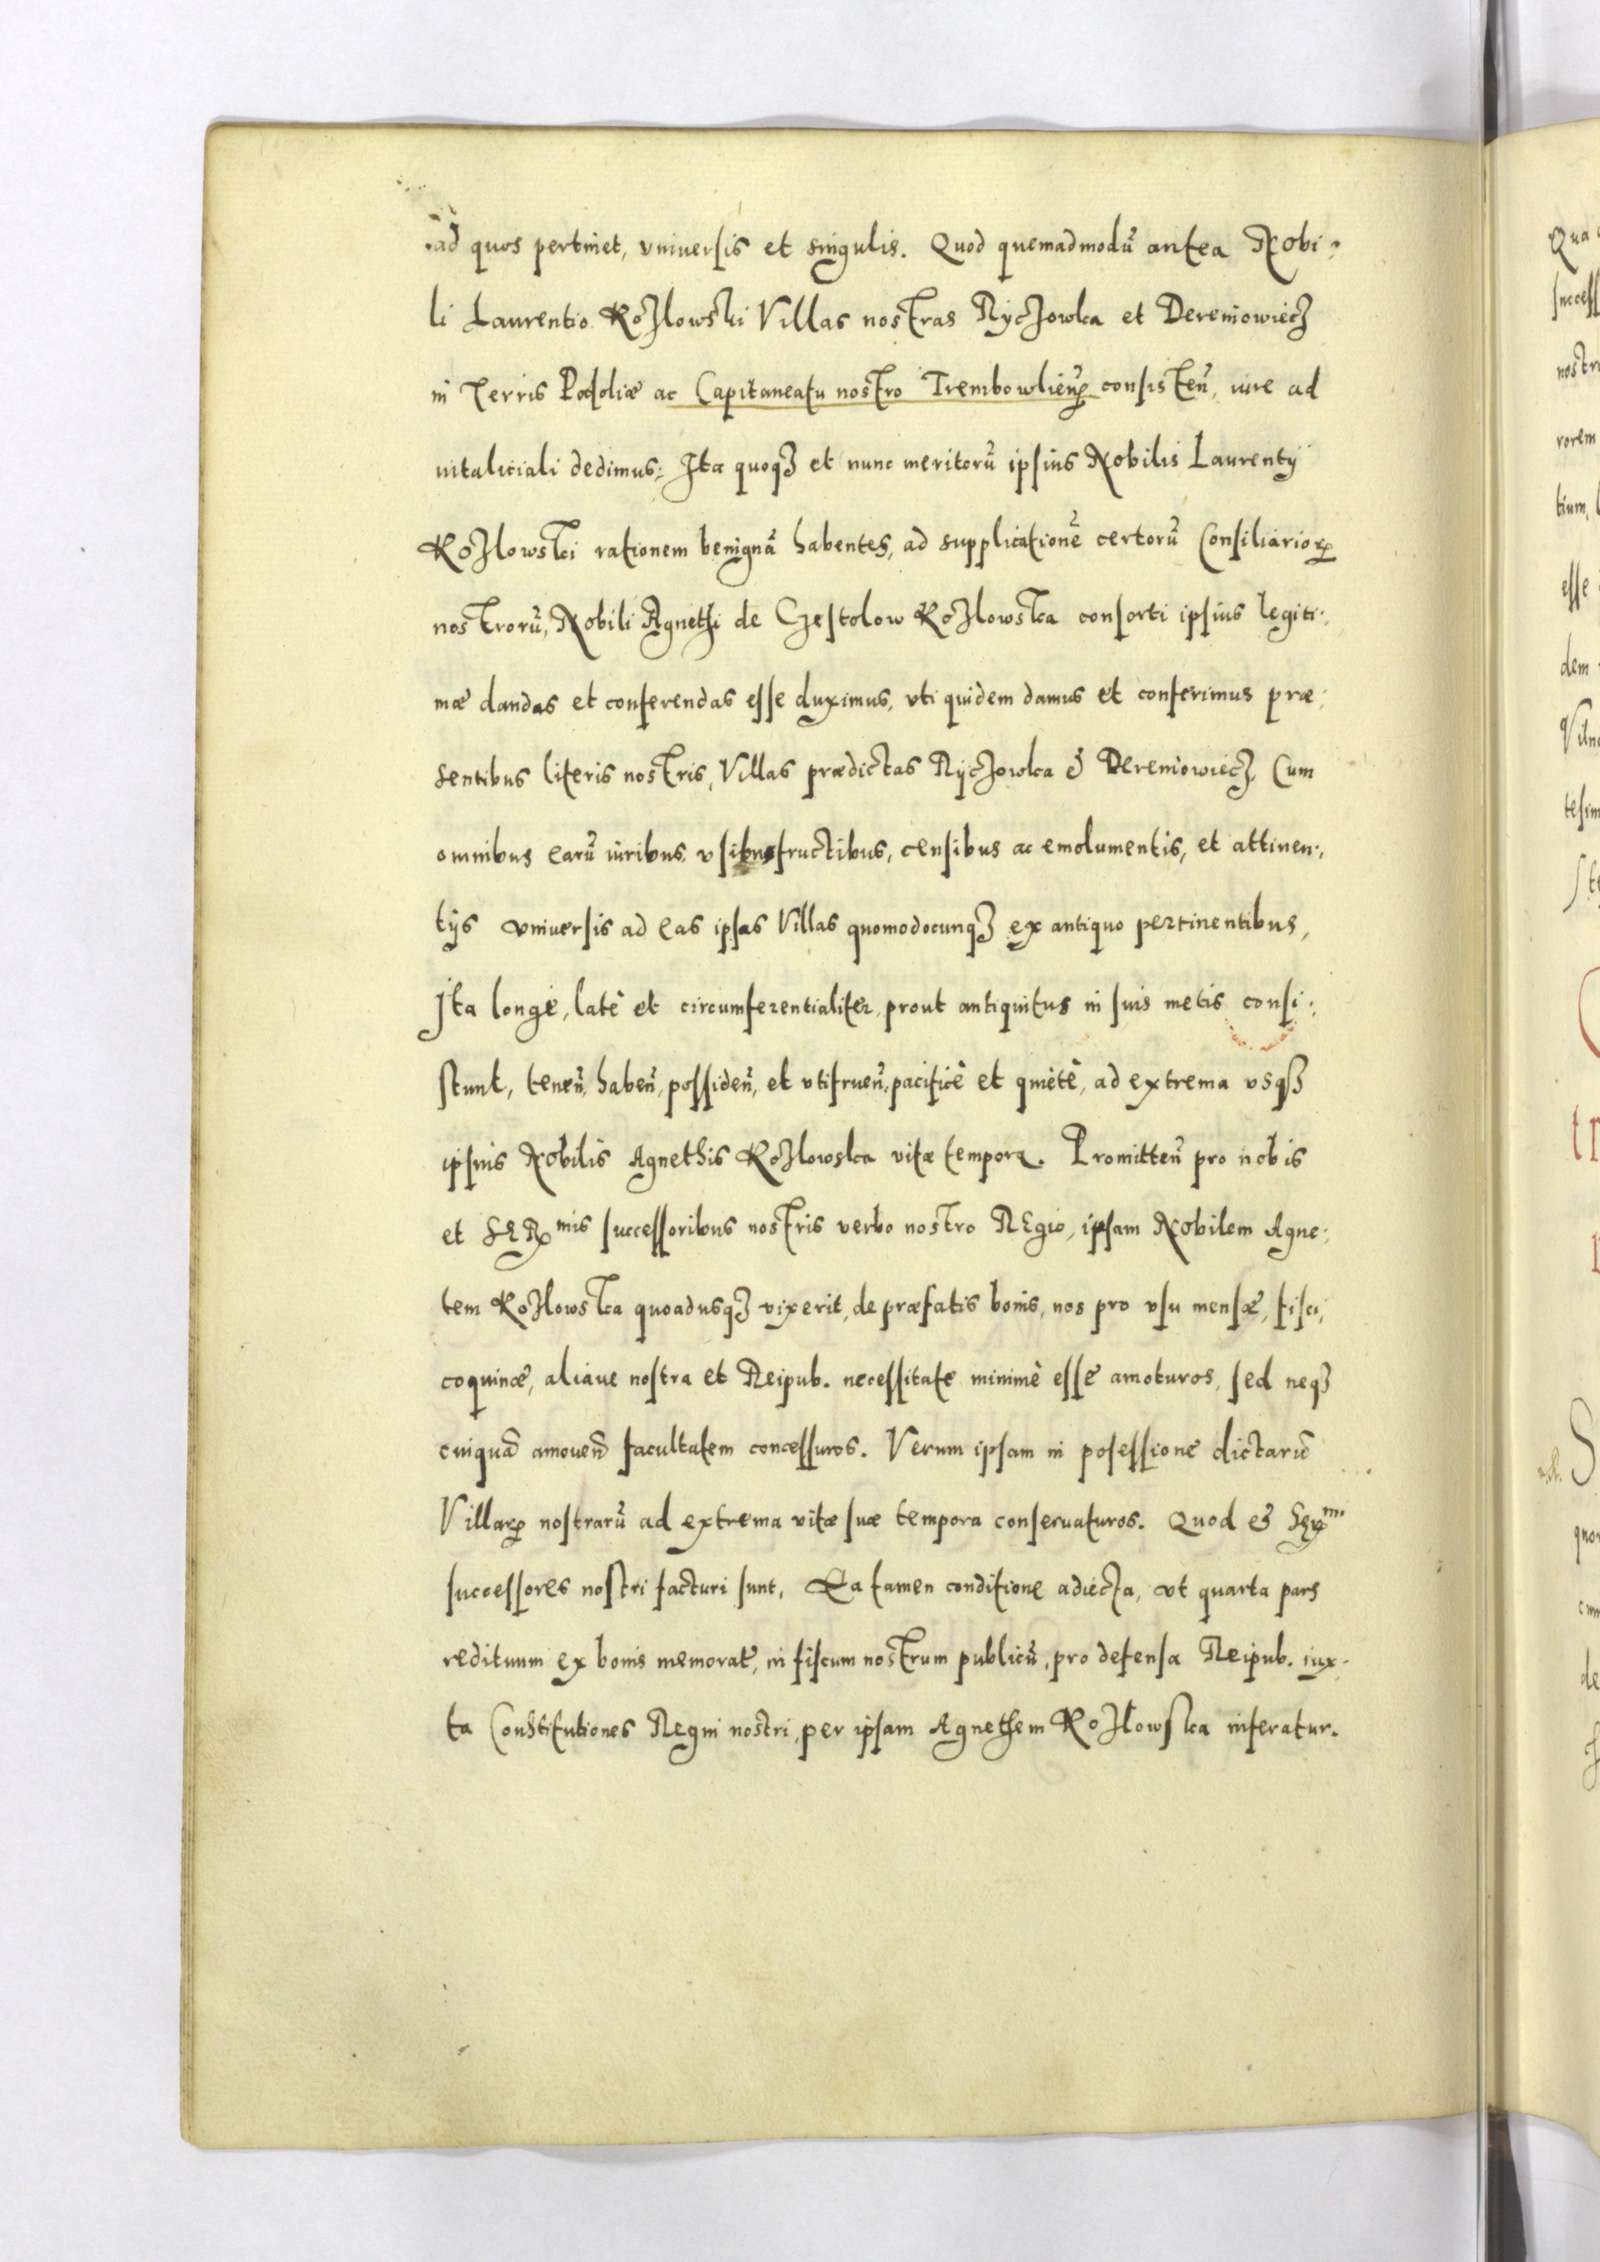 ad quos pertinet, vniuersis et singulis. Quod quemadmodũ antea Nobi:
li Laurentio Kozlowski Villas nostras Ryczowka et Dereniowiecz
in Terris Podoliæ ac Capitaneatu nostro Trembowlień consisteñ, iure ad
uitaliciali dedimus: Ita quoqȝ et nunc meritorũ ipsius Nobilis Laurentÿ
Kozlowski rationem benignã habentes, ad supplicationẽ certorũ Consiliarioꝝ
nostrorũ, Nobili Agnethi de Czestolow Kozlowska consorti ipsius legiti:
mæ dandas et conferendas esse duximus, vti quidem damus et conferimus præ:
sentibus literis nostris, Villas prædictas Ryczowka & Dereniowiecz, Cum
omnibus earũ iuribus, vsibusfructibus, censibus ac emolumentis, et attinen:
tijs vniuersis ad eas ipsas Villas quomodocunqȝ ex antiquo pertinentibus,
Ita longè, latè et circumferentialiter, prout antiquitus in suis metis consi:
stunt, teneñ, habeñ, possideñ, et vtifrueñ, pacificè et quietè, ad extrema vsqȝ
ipsius Nobilis Agnethis Kozlowska vitæ tempora. Promitteñ pro nobis
et Serͫⁱˢ successoribus nostris verbo nostro Regio, ipsam Nobilem Agne:
tem Kozlowska quoadusqȝ vixerit, de præfatis bonis, nos pro vsu mensæ, fisci,
coquinæ, aliaue nostra et Reipub. necessitate minimè esse amoturos, sed neqȝ
cuiquã amouend̃ facultatem concessuros. Verum ipsam in posessione dictarũ
Villaꝝ nostrarũ ad extrema vitæ suæ tempora conseruaturos. Quod & Serͫⁱ
successores nostri facturi sunt, Ea tamen conditione adiecta, vt quarta pars
redituum ex bonis memorat̃, in fiscum nostrum publicũ, pro defensa Reipub. iux:
ta Constitutiones Regni nostri, per ipsam Agnethem Kozlowska inferatur.